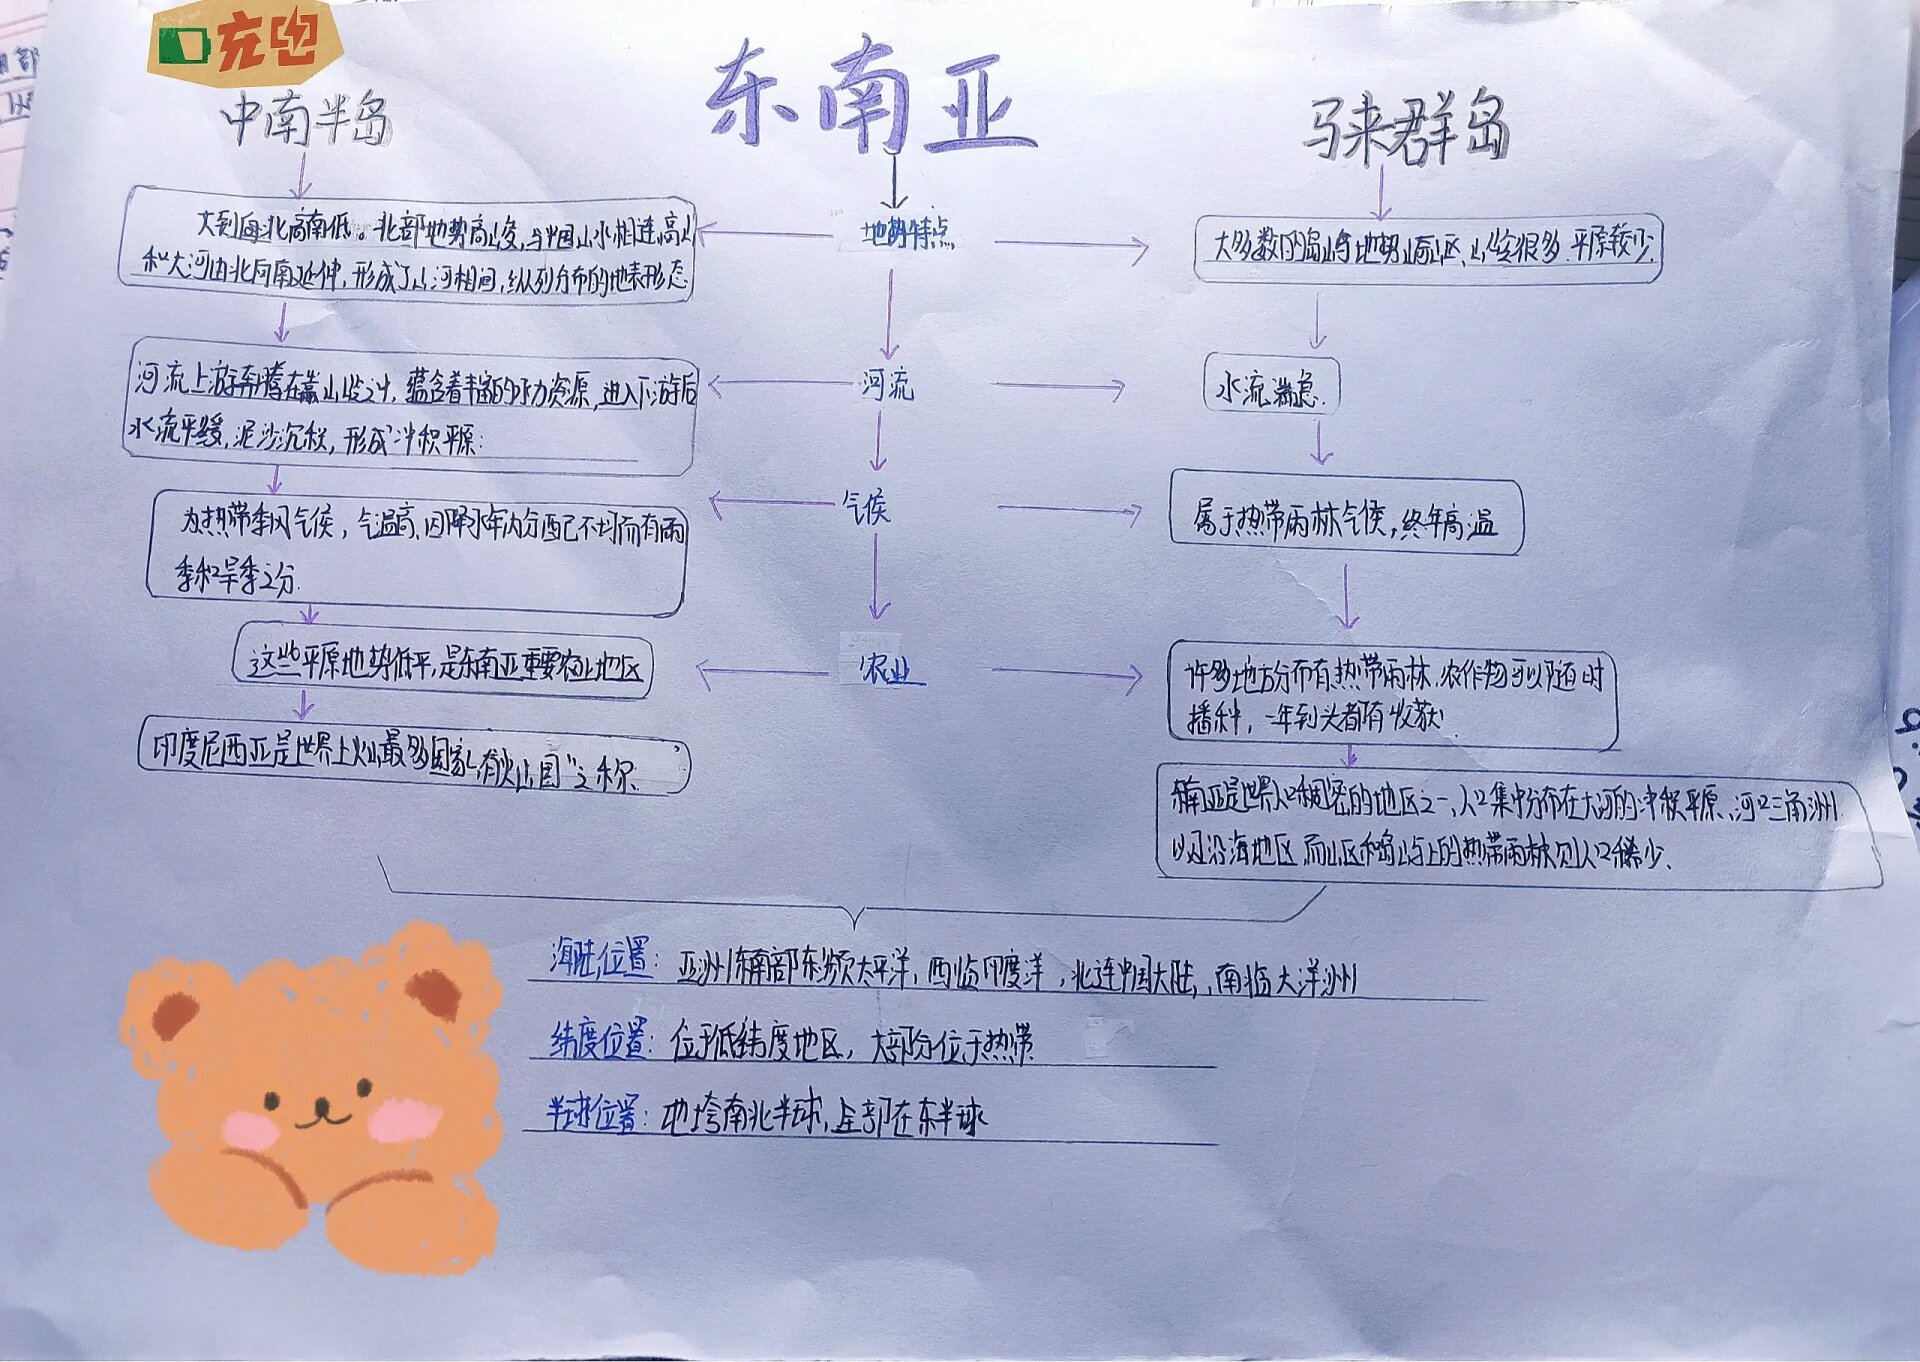 充电
东南亚
中南半岛
马来群岛
地势特点
大致海北高南低。北部地势高峻,与中国山水相连,高山
和大河由北向南延伸,形成了山河相间,纵列分布的地表形态
大多数的岛屿地势崎岖、山岭很多,平原较少.
河流
河流上游奔腾在高山峡之中,蕴含着丰富的水力资源,进入下游后
水流平缓,泥沙沉积,形成冲积平原:
水流湍急.
气候
为热带季风气候,气温高、因降水年内分配不均而有雨
季和旱季之分.
属于热带雨林气候,终年高温
农业
这些平原地势低平,是东南亚重要农业地区
许多地方分布有热带雨林.农作物可以随时
播种,一年到头都有收获
印度尼西亚是世界上火山最多国家,有"火山国"之称.
东南亚是世界人口稠密的地区之一,人口集中分布在大河的冲积平原、河口三角洲
以及沿海地区 而山区和岛屿上的热带雨林则人口稀少.
海陆位置: 亚洲东南部东濒太平洋,西临印度洋,北连中国大陆,南临大洋洲
纬度位置: 位于低纬度地区, 大部分位于热带
半球位置: 地垮南北半球,全部在东半球